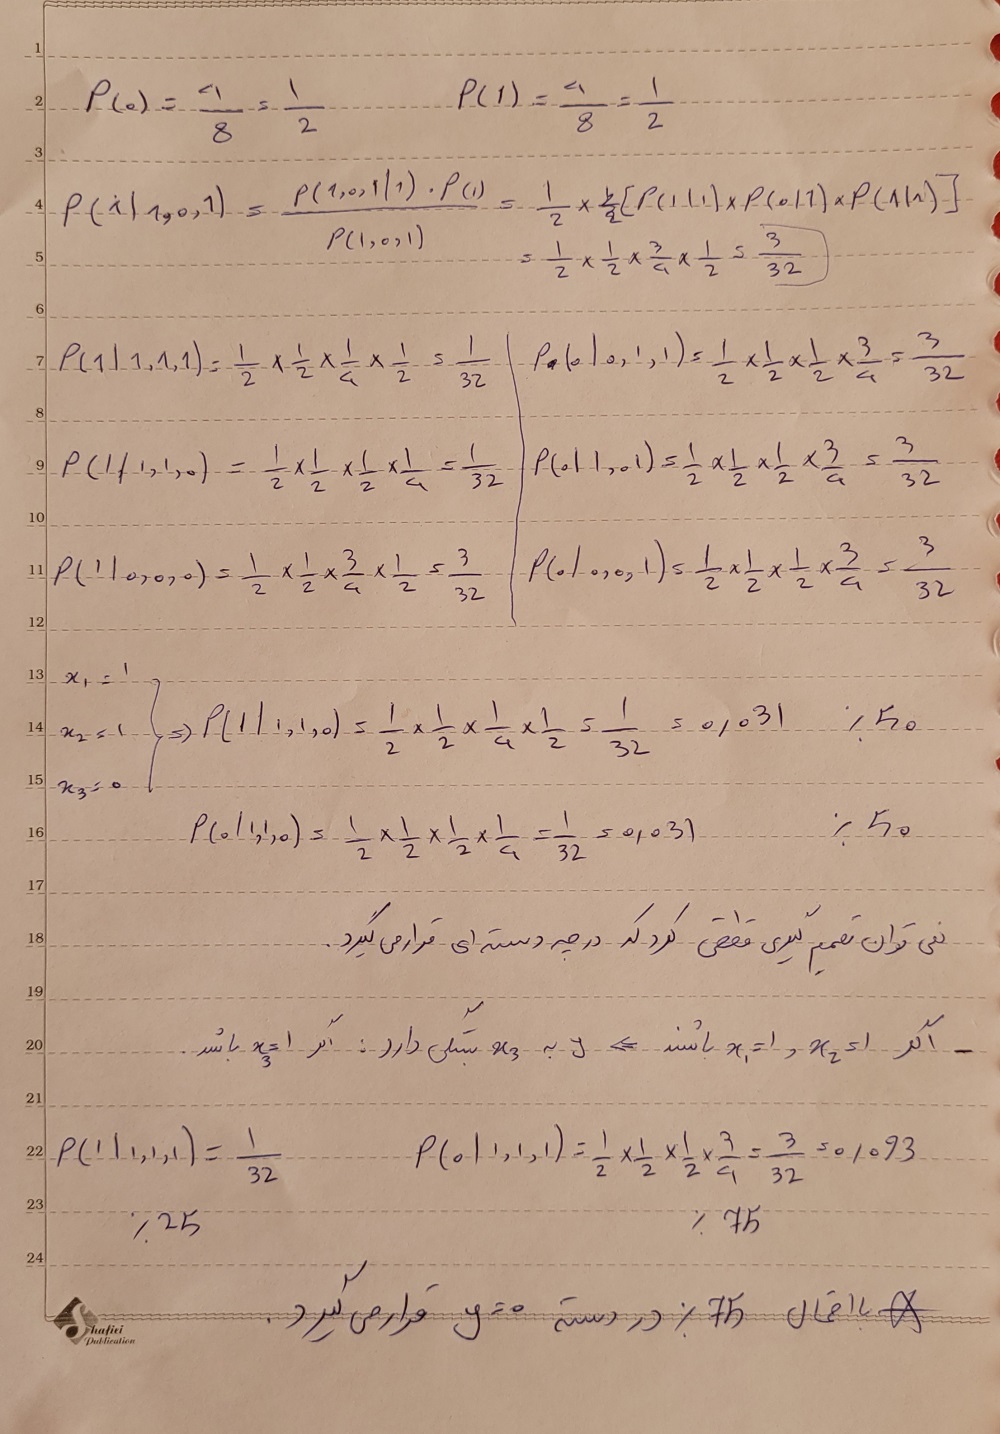 1
2 P(0) = 4/8 = 1/2 P(1) = 4/8 = 1/2
3
4 P(1|1,0,1) = P(1,0,1|1) · P(1) / P(1,0,1) = 1/2 × [P(1|1) × P(0|1) × P(1|1)]
5 = 1/2 × 1/2 × 3/4 × 1/2 = 3/32
6
7 P(1|1,1,1) = 1/2 × 1/2 × 1/4 × 1/2 = 1/32 P(0|0,1,1) = 1/2 × 1/2 × 1/2 × 3/4 = 3/32
8
9 P(1|1,1,0) = 1/2 × 1/2 × 1/2 × 1/4 = 1/32 P(0|1,01) = 1/2 × 1/2 × 1/2 × 3/4 = 3/32
10
11 P(1|0,0,0) = 1/2 × 1/2 × 3/4 × 1/2 = 3/32 P(0|0,0,1) = 1/2 × 1/2 × 1/2 × 3/4 = 3/32
12
13 x₁ = 1
14 x₂ = 1 => P(1|1,1,0) = 1/2 × 1/2 × 1/4 × 1/2 = 1/32 = 0,031 ٪50
15 x₃ = 0
16 P(0|1,1,0) = 1/2 × 1/2 × 1/2 × 1/4 = 1/32 = 0,031 ٪50
17
18 نمی توان تصمیم گیری قطعی کرد که در چه دسته ای قرار می گیرد.
19
20 - اگر x₂=1 و x₁=1 باشند <= y به x₃ بستگی دارد : اگر x₃=1 باشد.
21
22 P(1|1,1,1) = 1/32 P(0|1,1,1) = 1/2 × 1/2 × 1/2 × 3/4 = 3/32 = 0,093
23 ٪25 ٪75
24
با احتمال 75٪ در دسته y=0 قرار می گیرد.
Shafiei
Publication